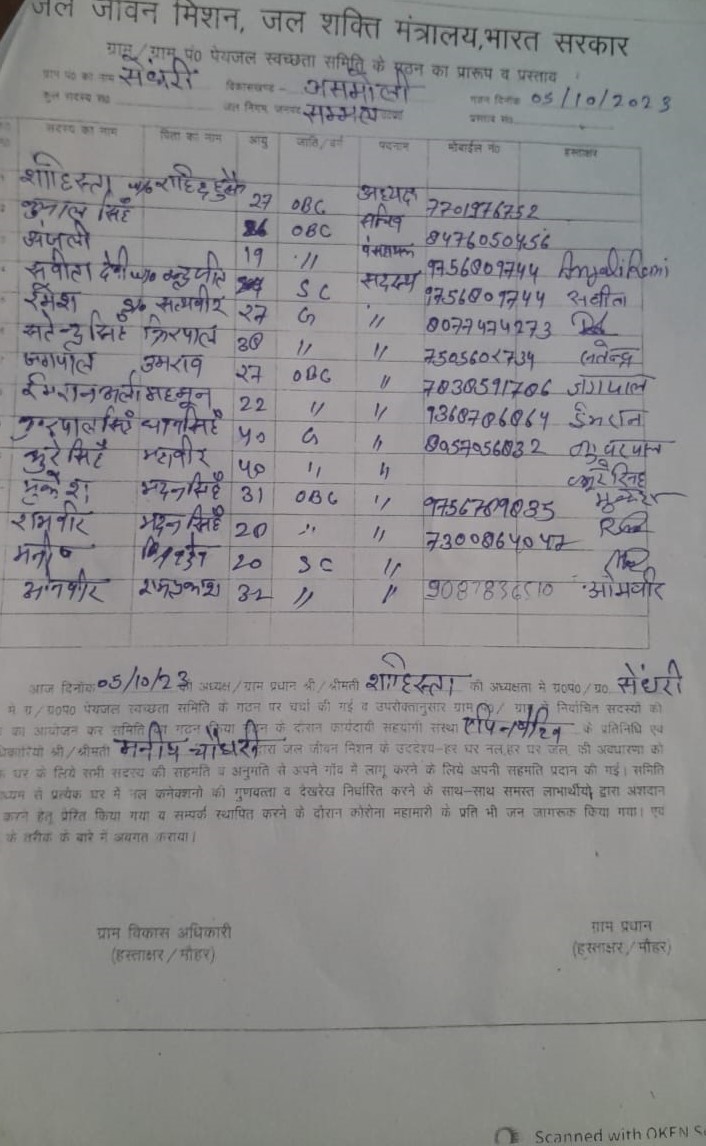 जल जीवन मिशन, जल शक्ति मंत्रालय,भारत सरकार
ग्राम/ग्राम पं0 पेयजल स्वच्छता समिति के गठन का प्रारूप व प्रस्ताव
ग्राम पं0 का नाम सेंधरी विकासखण्ड - असमोली गठन दिनांक 05/10/2023
कुल सदस्य सं0 जल निगम जनपद सम्भल प्रस्ताव सं0
सदस्य का नाम पिता का नाम आयु जाति/वर्ग पदनाम मोबाईल नं0 हस्ताक्षर
शाहिस्ता w/o राहिद हुसैन 27 OBC अध्यक्ष 7701976752
सिंह 26 OBC सचिव 8476050456
अंजली 19 ,, 9756809744 Anjali Rani
सविता देवी w/o SC सदस्य 9756809744 सविता
रमेश S/o सत्यवीर 27 G ,, 8077474273
सिंह किरपाल 38 ,, ,, 7505602734 जितेन्द्र
जगपाल उमराव 27 OBC ,, 7830591706 जगपाल
ईमरान अली महमून 22 ,, ,, 9368706064 ईमरान
सिंह थानसिंह 40 G ,, 8057056832
सिंह महावीर 40 ,, ,,
मुकेश मदन सिंह 31 OBC ,, 9756789835 मुकेश
रामवीर मदन सिंह 20 ,, ,, 7300864047
मनीष 20 SC ,,
ओमवीर 32 ,, ,, 9087836510 ओमवीर
आज दिनांक 05/10/23 को अध्यक्ष/ग्राम प्रधान श्री/श्रीमती शाहिस्ता की अध्यक्षता में ग्र0पं0/ग्रा0 सेंधरी
में ग्र/ग्र0पं0 पेयजल स्वच्छता समिति के गठन पर चर्चा की गई व उपरोक्तानुसार ग्राम निर्वाचित सदस्यों की
का आयोजन कर समिति का गठन किया जिन के दौरान कार्यदायी सहयोगी संस्था के प्रतिनिधि एवं
श्री/श्रीमती मनीष चौधरी द्वारा जल जीवन मिशन के उददेश्य-हर घर नल,हर घर जल, की अवधारणा को
घर के लिये सभी सदस्य की सहमति व अनुमति से अपने गाँव में लागू करने के लिये अपनी सहमति प्रदान की गई। समिति
से प्रत्येक घर में नल कनेक्शनो की गुणवत्ता व देखरेख निर्धारित करने के साथ-साथ समस्त लाभार्थीयों द्वारा अंशदान
करने हेतु प्रेरित किया गया व सम्पर्क स्थापित करने के दौरान कोरोना महामारी के प्रति भी जन जागरूक किया गया। एवं
के तरीक के बारे में अवगत कराया।
ग्राम विकास अधिकारी ग्राम प्रधान
(हस्ताक्षर/मौहर) (हस्ताक्षर/मौहर)
Scanned with OKEN